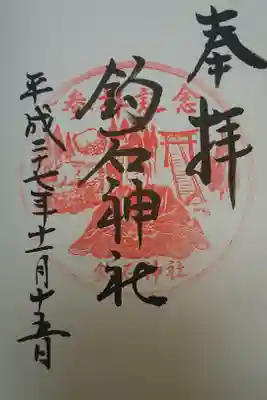 奉拝
参拝記念
釣石神社
釣石神社
平成二十七年十二月十五日